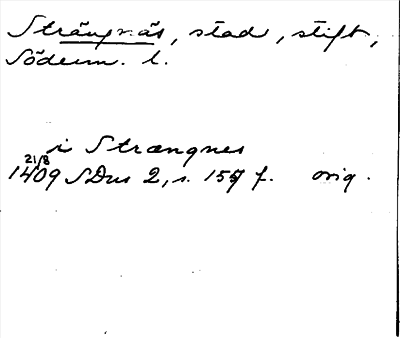 Strängnäs, stad, stift,
Söderm. l.
i Strængnes
21/8
1409 SDns 2, s. 157 f. orig.